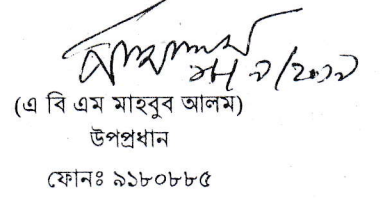 (এ বি এম মাহবুব আলম)
উপপ্রধান
ফোনঃ ৯১৮০৮৮৫